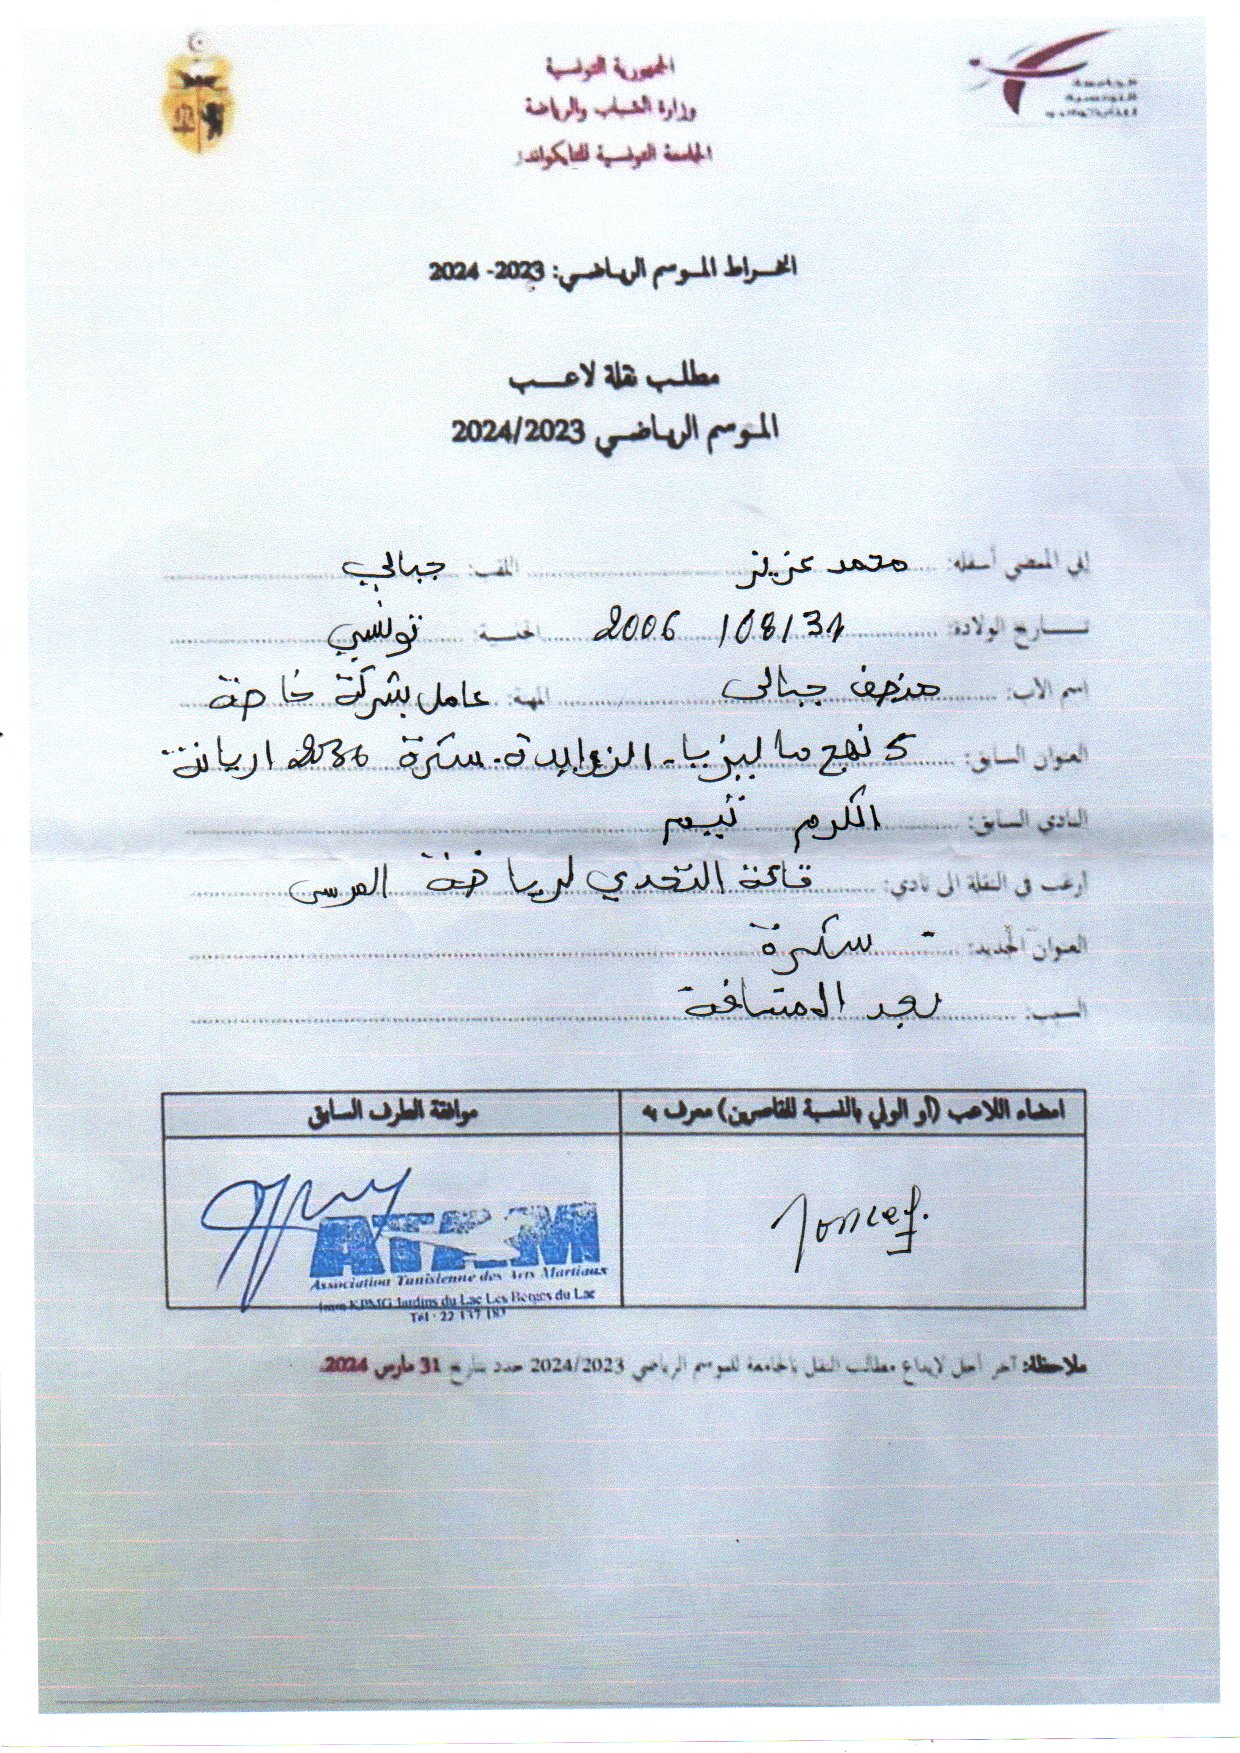 الجمهورية التونسية
وزارة الشباب والرياضة
الجامعة التونسية للتايكواندو
الجامعة
التونسية
للتايكواندو
انخراط الموسم الرياضي: 2023- 2024
مطلب نقلة لاعب
الموسم الرياضي 2024/2023
إني الممضي أسفله: محمد عزيز اللقب: جبالي
تاريخ الولادة: 31/08/ 2006 الجنسية: تونسي
اسم الاب: منصف جبالي المهنة: عامل بشركة خاصة
العنوان السابق: 5 نهج ماليزيا - الزوايدة - سكرة 2036 اريانة
النادي السابق: الكرم تيم
أرغب في النقلة الى نادي: قاعة التحدي لرياضة المرسى
العنوان الجديد: - سكرة
السبب: بعد المسافة
امضاء اللاعب (أو الولي بالنسبة للقاصرين) معرف به
موافقة الطرف السابق
Moncef.
ATAM
Association Tunisienne des Arts Martiaux
Imm KPMG Jardins du Lac Les Berges du Lac
Tél : 22 137 187
ملاحظة: آخر أجل لإيداع مطالب النقل بالجامعة للموسم الرياضي 2024/2023 حدد بتاريخ 31 مارس 2024.